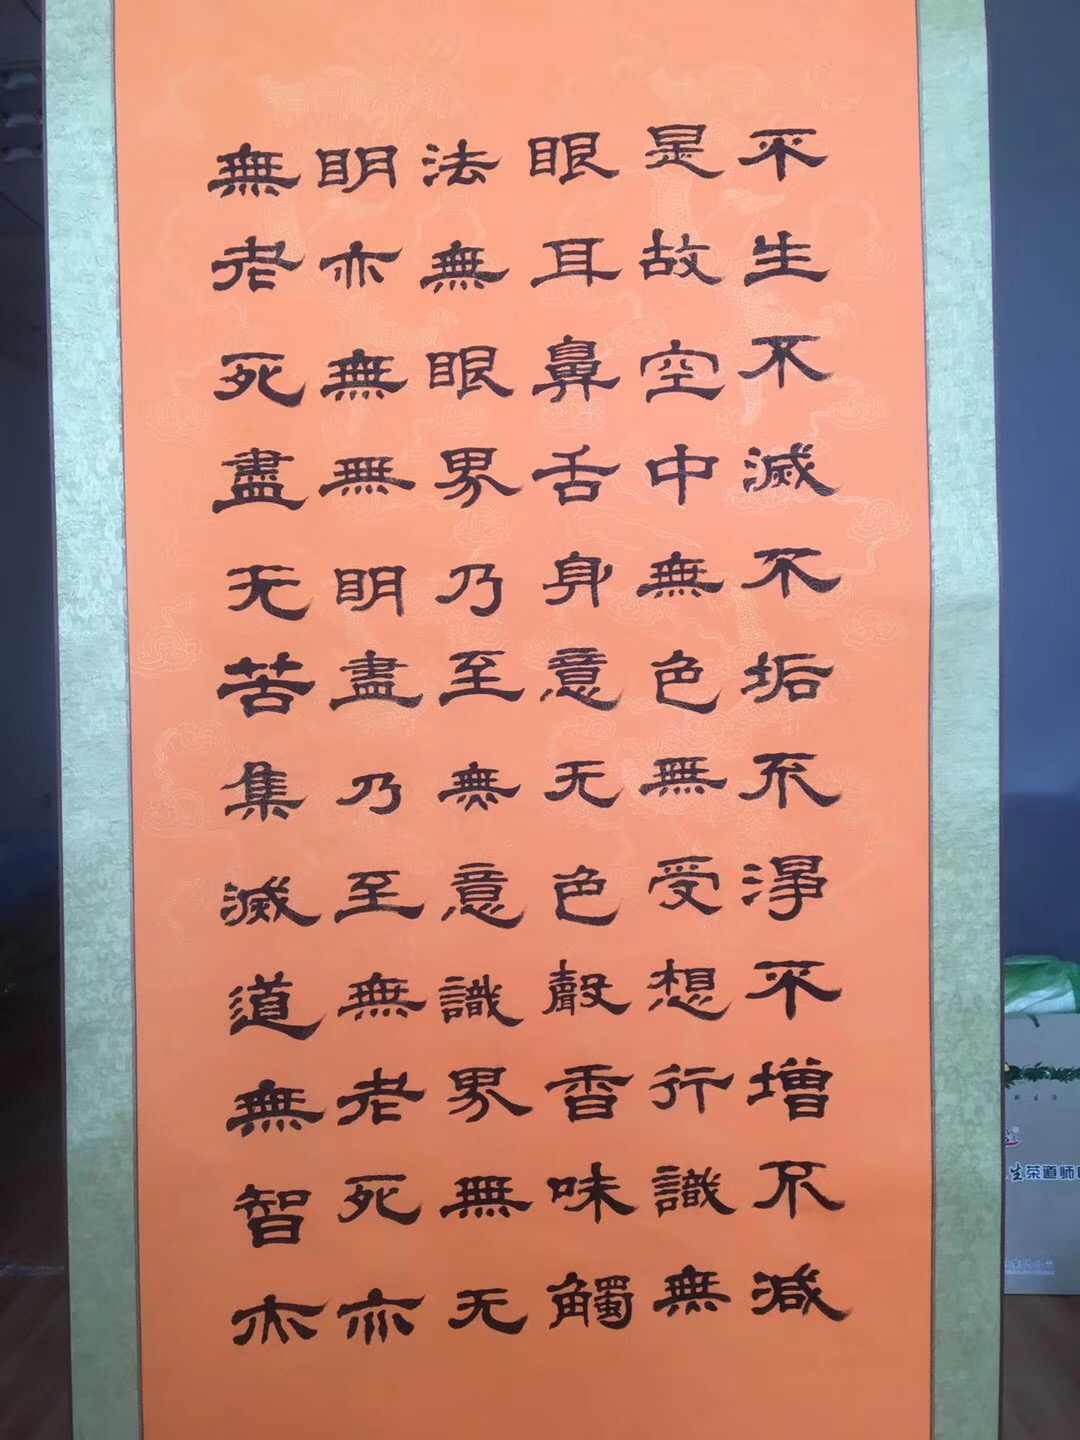 不生不滅不垢不淨不增不減
是故空中無色無受想行識無
眼耳鼻舌身意无色聲香味觸
法無眼界乃至無意識界無无
明亦無無明盡乃至無老死亦
無老死盡无苦集滅道無智亦
生茶道师